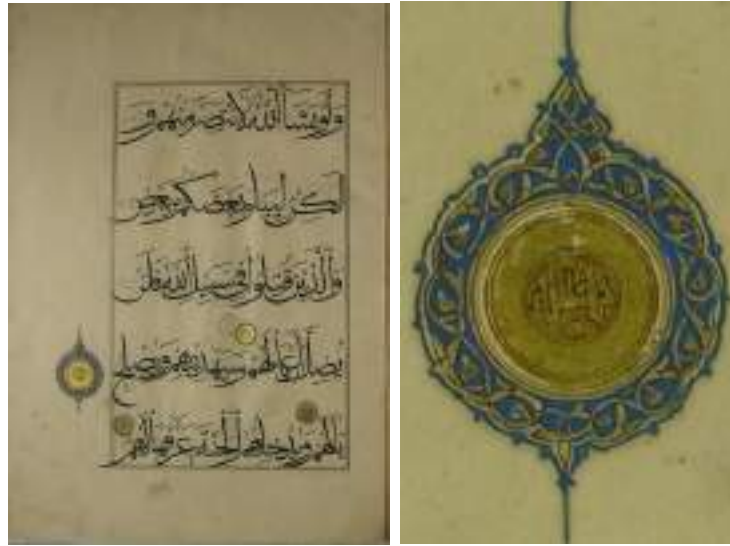 ولو يشاء الله لانتصر منهم و
لكن ليبلو بعضكم ببعض
والذين قتلوا في سبيل الله فلن
يضل أعمالهم سيهديهم ويصلح
بالهم ويدخلهم الجنة عرفها لهم